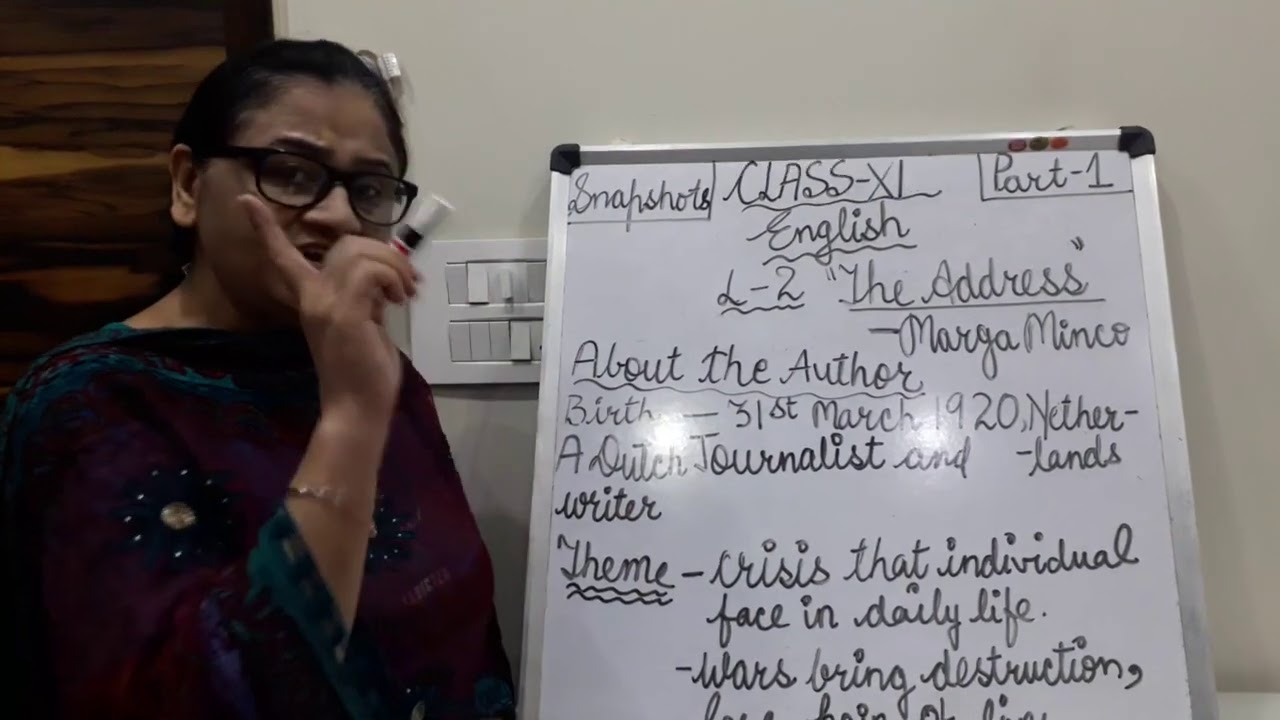 Snapshots CLASS-XI Part-1
English
L-2 "The Address"
-Marga Minco
About the Author
Birth - 31st March 1920, Nether-
A Dutch Journalist and -lands
writer
Theme - crisis that individual
face in daily life.
-wars bring destruction,